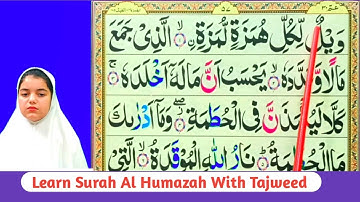 وَيْلٌ لِّكُلِّ هُمَزَةٍ لُّمَزَةِ ۙ الَّذِىْ جَمَعَ
مَالًا وَّعَدَّدَهٗ ۙ يَحْسَبُ اَنَّ مَالَهٗۤ اَخْلَدَهٗ ۚ
كَلَّا لَيُنْۢبَذَنَّ فِى الْحُطَمَةِ ۖ وَمَاۤ اَدْرٰىكَ
مَا الْحُطَمَةُ ؕ نَارُ اللّٰهِ الْمُوْقَدَةُ ۙ الَّتِىْ
Learn Surah Al Humazah With Tajweed